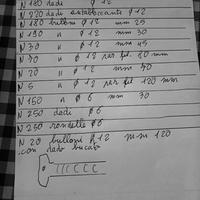 N 180 dadi ø 12
N 220 dadi autobloccanti ø 12
N 180 bulloni ø 12 mm 25
N 190 " ø 12 mm 30
N 30 " ø 12 mm 45
N 70 " ø 12 per fil. 80 mm
N 20 " ø 12 mm 70
N 5 " ø 12 per fil 120 mm
N 150 " ø 6 mm 30
N 250 dadi ø 6
N 250 rondelle ø 6
N 20 bulloni ø 12 mm 120
con dado bucato